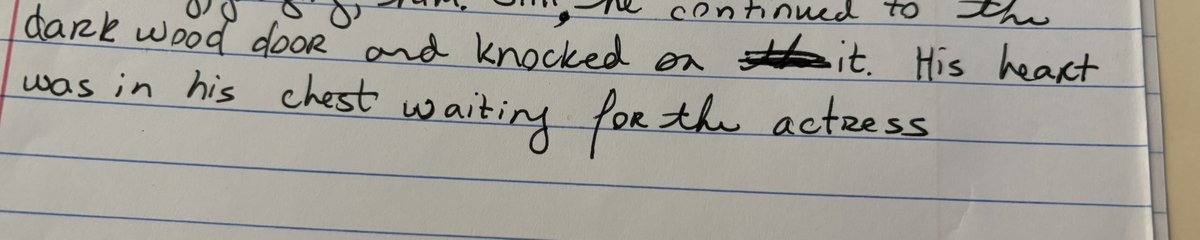 he continued to the
dark wood door and knocked on it. His heart
was in his chest waiting for the actress